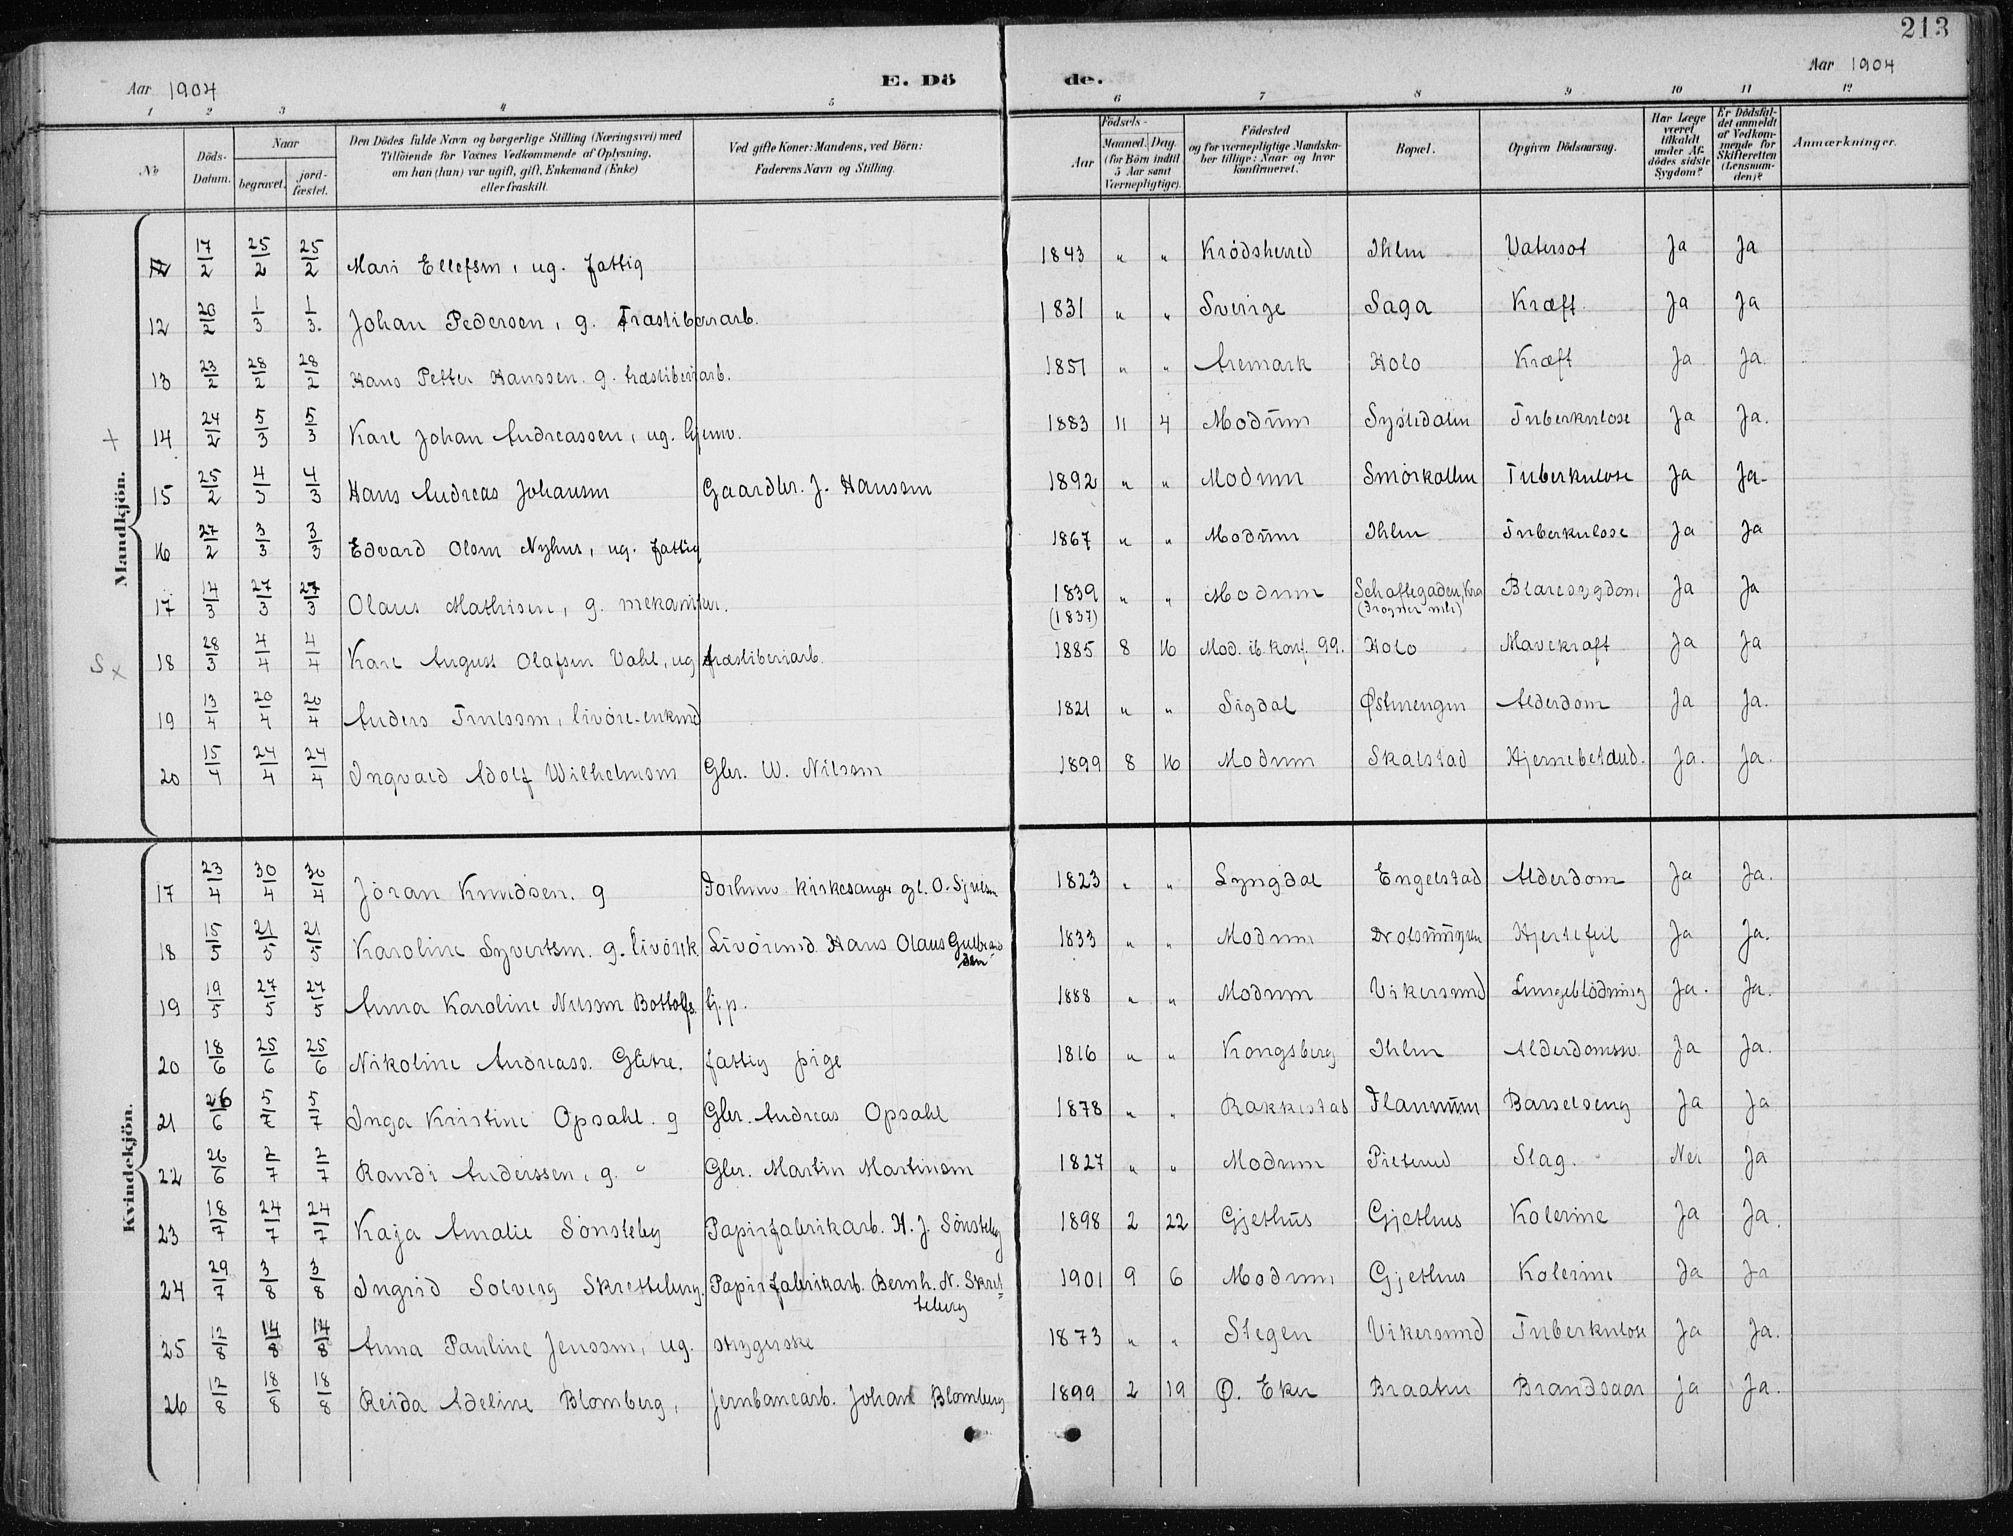 213
Aar 1904
E. Dö
de.
Aar 1904
1 2 3 4 5 6 7 8 9 10 11 12
No
Döds-Datum.
Naar
begravet.
jord-fæstet.
Den Dödes fulde Navn og borgerlige Stilling (Næringsvei) med
Tilföiende for Voxnes Vedkommende af Oplysning,
om han (hun) var ugift, gift, Enkemand (Enke)
eller fraskilt.
Ved gifte Koner: Mandens, ved Börn:
Faderens Navn og Stilling.
Födsels-
Aar
Maaned.
Dag.
(for Börn indtil
5 Aar samt
Værnepligtige).
Födested
og for værnepligtige Mandska-
ber tillige: Naar og hvor
konfirmeret.
Bopæl.
Opgiven Dödsaarsag.
Har Læge
været
tilkaldt
under Af-
dödes sidste
Sygdom?
Er Dödsfal-
det anmeldt
af Vedkom-
mende for
Skifteretten
(Lensman-
den)?
Anmærkninger.
Mandkjön.
17/2 25/2 25/2 Mari Ellefsen, ug. fattig 1843 " " Krödsherred Ihlen Vatersot Ja Ja
12 26/2 1/3 1/3. Johan Pedersen, g. Træsliberiarb. 1831 " " Sverige Saga Kræft Ja Ja
13 23/2 28/2 28/2 Hans Petter Hanssen. g. træsliberiarb. 1851 " " Aremark Holo Kræft Ja Ja.
+ 14 24/2 5/3 5/3 Karl Johan Andreassen, ug. Gjenv. 1883 11 4 Modum Sysledalen Tuberkulose Ja Ja.
15 25/2 4/3 4/3 Hans Andreas Johansen Gaardbr. J. Hanssen 1892 " " Modum Smörkollen Tuberkulose Ja Ja
16 27/2 3/3 3/3 Edvard Olsen Nyhus, ug. fattig 1867 " " Modum Ihlen Tuberkulose Ja Ja
17 17/3 27/3 27/3 Olaus Mathisen, g. mekaniker. 1839 " " Modum Schaftegaden, Kra Blæresygdom Ja Ja
(1837)
S x 18 28/3 4/4 4/4 Karl August Olafsen Vahl, ug træsliberiarb. 1885 8 16 Mod. ib. konf. 99. Holo Mavekræft Ja Ja
19 13/4 20/4 20/4 Anders Trulssen, livöre-enkmd 1821 " " Sigdal Østmengen Alderdom Ja Ja.
20 15/4 24/4 24/4 Ingvald Adolf Wilhelmsen Gbr. W. Nilsen 1899 8 16 Modum Skalstad Hjernebetænd. Ja. Ja.
Kvindekjön.
17 23/4 30/4 30/4 Jöran Knudsen. g Forhenv kirkesanger gl. O. 1823 " " Lyngdal Engelstad Alderdom Ja Ja.
18 15/5 21/5 21/5 Karoline Syvertsen. g. livörek Livöremd Hans Olaus Gulbrandsen 1833 " " Modum Drolsumsjøen Hjertefeil Ja Ja.
19 19/5 27/5 27/5 Anna Karoline Nilsen Bottolfs. tj.p. 1888 " " Modum Vikersund Lungeblödning Ja. Ja.
20 18/6 25/6 25/6 Nikoline Andreass. Glitre. fattig pige 1816 " " Kongsberg Ihlen Alderdomssv. Ja Ja.
21 26/6 5/7 5/7 Inga Kristine Opsahl. g Gbr. Andreas Opsahl 1878 " " Rakkestad Flannum Barselseng Ja Ja
22 26/6 2/7 2/7 Randi Anderssen, g. " Gbr. Martin Martinsen 1827 " " Modum Pieterud Slag. Nei Ja
23 18/7 24/7 24/7 Kaja Amalie Sönsteby Papirfabrikarb. H. J. Sönsteby 1898 2 22 Gjethus Gjethus Kolerine Ja Ja.
24 29/7 3/8 3/8 Ingrid Solveig Skretteberg. Papirfabrikarb. Bernh. N. Skret-
teberg 1901 9 6 Modum Gjethus Kolerine Ja Ja
25 12/8 17/8 17/8 Anna Pauline Jenssen, ug. strygerske 1873 " " Stegen Vikersund Tuberkulose Ja Ja.
26 12/8 18/8 18/8 Reida Adeline Blomberg, Jernbanearb. Johan Blomberg 1899 2 19 Ø. Eker Braaten Brandsaar Ja Ja.